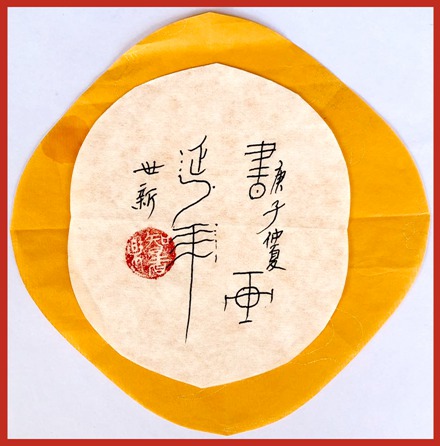 書画
延年
庚子仲夏
世新